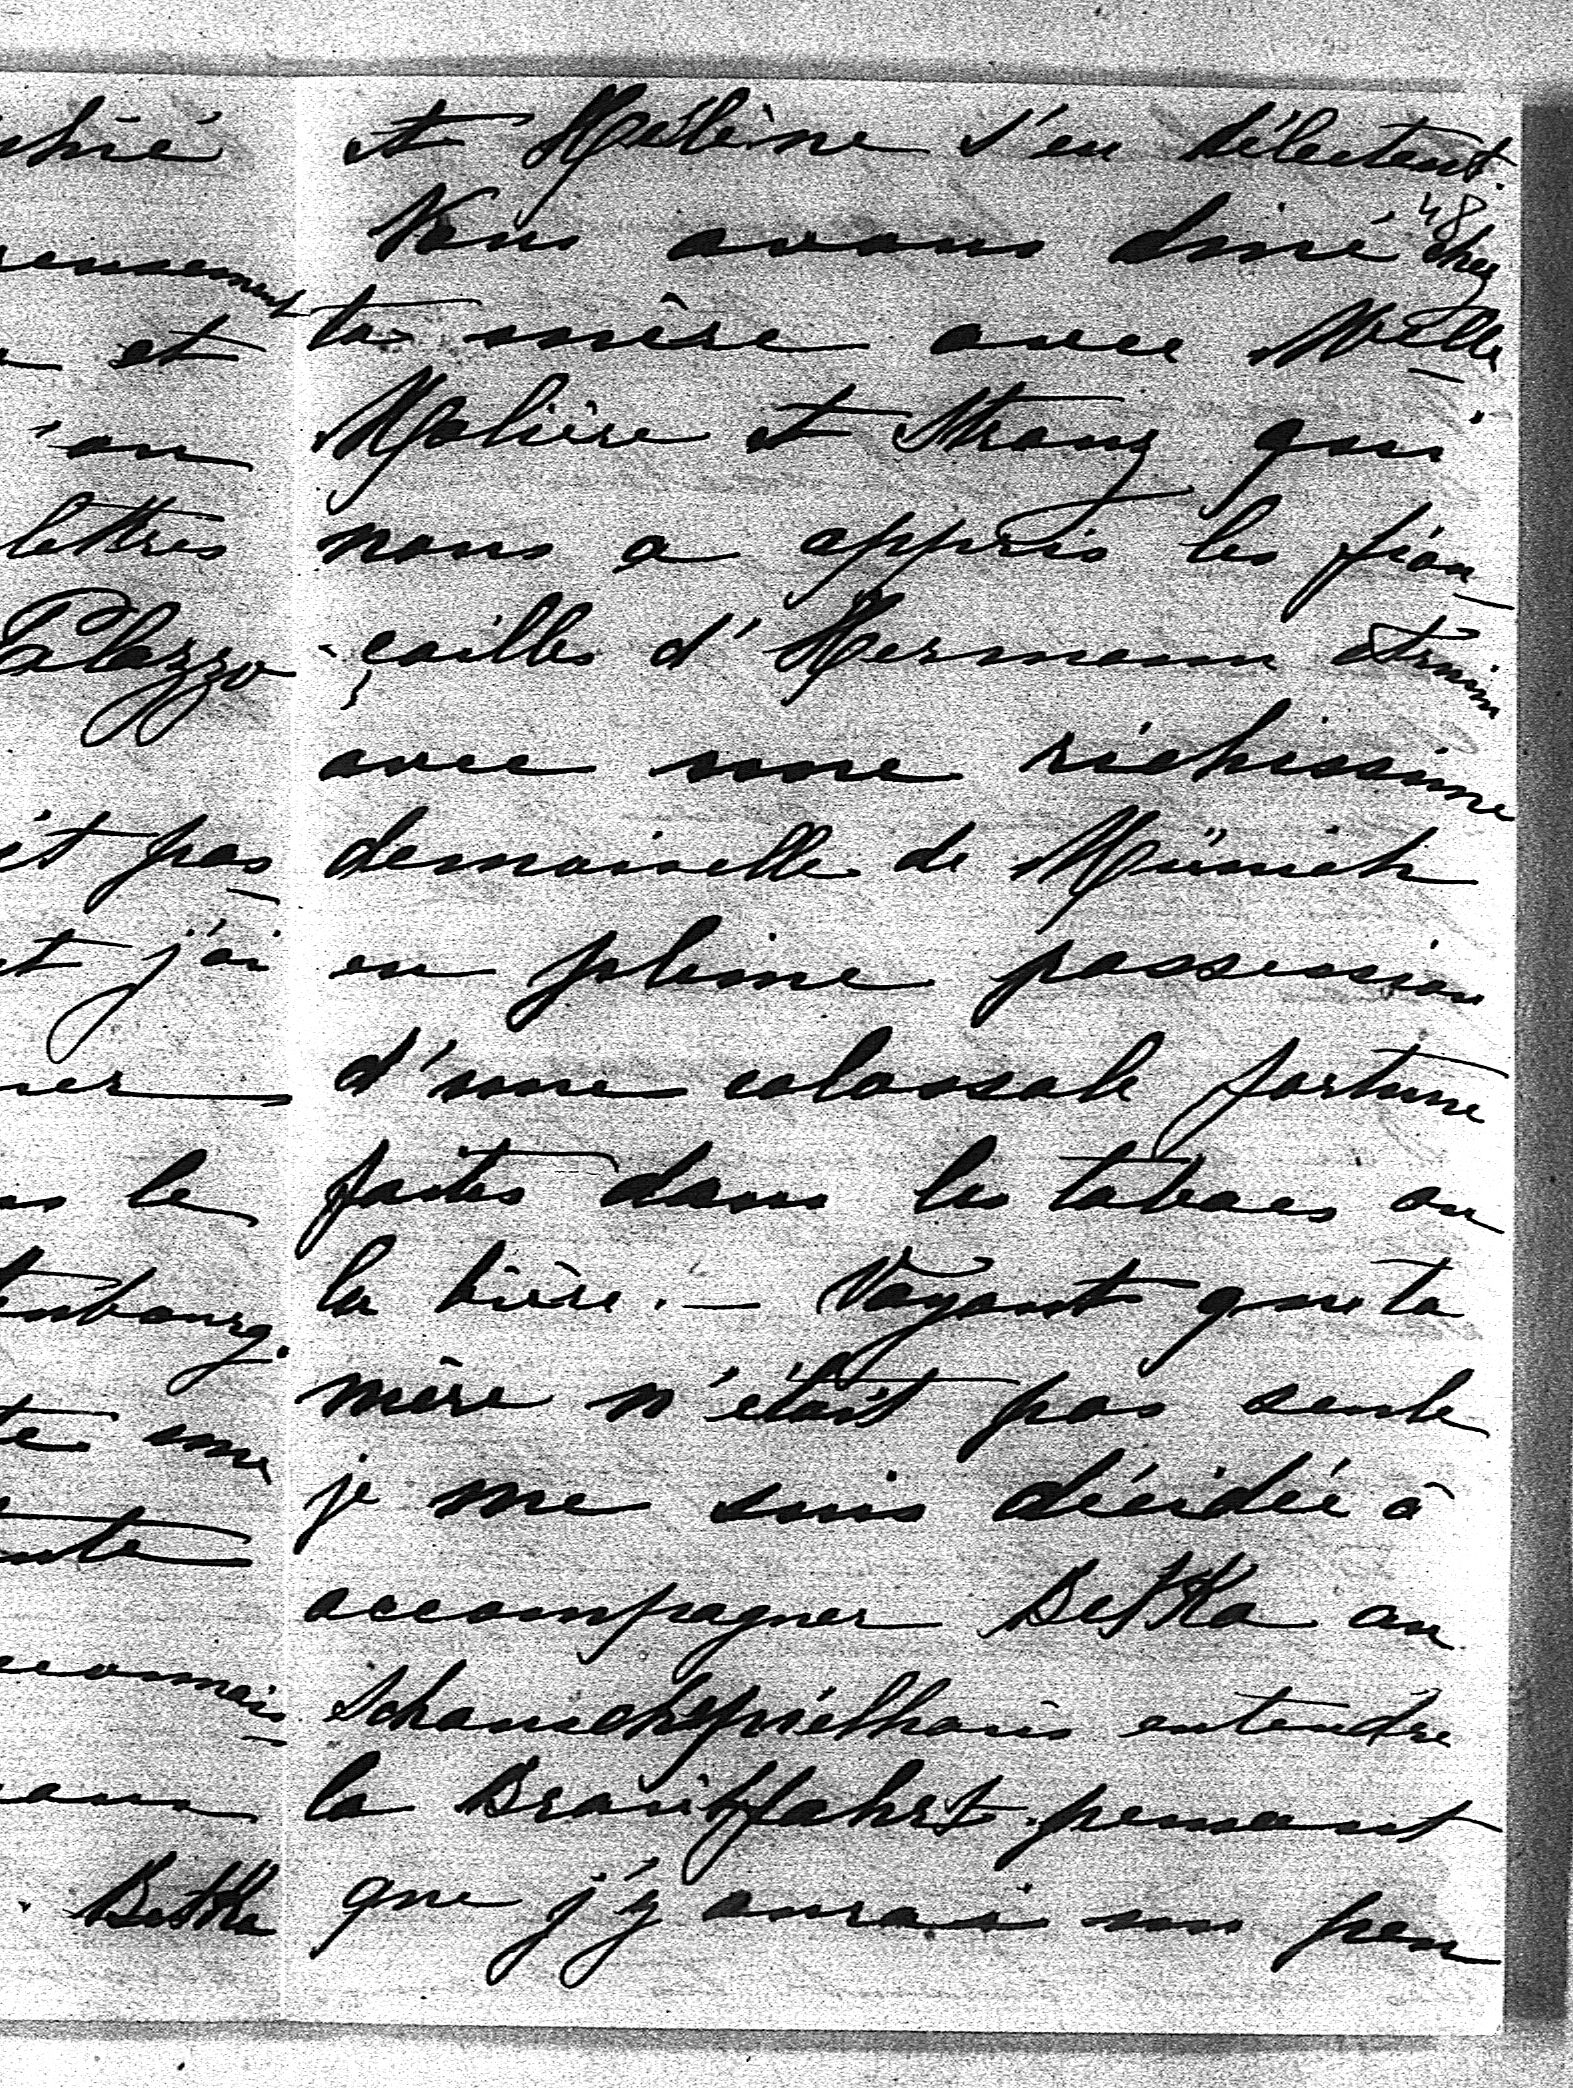 chié
reusement
et
'on
lettres
Palazzo
it pas
et j'ai
ner
le
enbourg.
te une
ente
connais
Betka
et Hélène s'en délectent.
48
Nous avons diné chez
ta mère avec Melle
Molière et Stranz qui
nous a appris les fian
çailles d'Hermann
avec une richissime
demoiselle de Münich
en pleine possession
d'une colossale fortune
faites dans les tabacs ou
la bière. — Voyant que ta
mère n'était pas seule
je me suis décidée à
accompagner Betka au
Schauschspielhaus entendre
la Brautfahrt pensant
que j'y aurais un peu